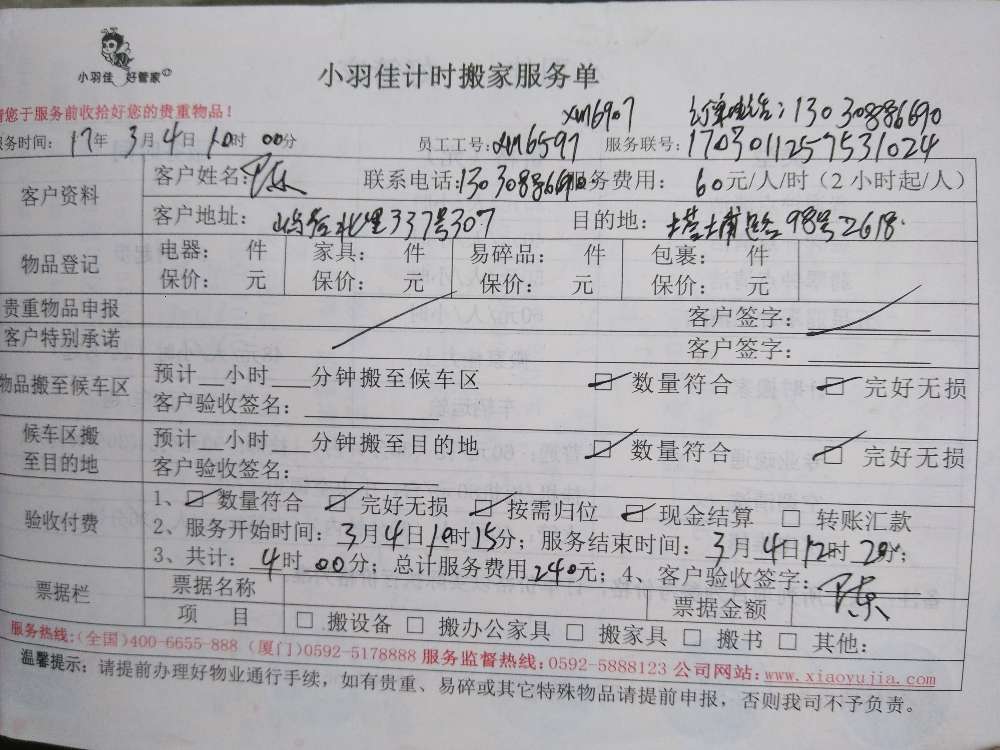 小羽佳 好管家
小羽佳计时搬家服务单
请您于服务前收拾好您的贵重物品！ xm6907 订单电话：13030886690
服务时间：17年3月4日10时00分 员工工号：xm6597 服务联号：1703011257531024
客户资料 客户姓名：陈 联系电话：13030886690 服务费用：60元/人/时（2小时起/人）
客户地址：屿后北里337号307 目的地：塔埔路98号2618
物品登记 电器： 件 家具： 件 易碎品： 件 包裹： 件
保价： 元 保价： 元 保价： 元 保价： 元
贵重物品申报 客户签字：
客户特别承诺 客户签字：
物品搬至候车区 预计__小时___分钟搬至候车区 ☑ 数量符合 ☑ 完好无损
客户验收签名：
候车区搬至目的地 预计__小时___分钟搬至目的地 ☑ 数量符合 ☑ 完好无损
客户验收签名：
验收付费 1、☑ 数量符合 ☑ 完好无损 ☑ 按需归位 ☑ 现金结算 □ 转账汇款
2、服务开始时间：3月4日10时15分；服务结束时间：3月4日12时20分；
3、共计：4时00分；总计服务费用240元；4、客户验收签字：陈
票据栏 票据名称 票据金额
项 目 □ 搬设备 □ 搬办公家具 □ 搬家具 □ 搬书 □ 其他：
服务热线：(全国)400-6655-888 (厦门)0592-5178888 服务监督热线：0592-5888123 公司网站：www.xiaoyujia.com
温馨提示：请提前办理好物业通行手续，如有贵重、易碎或其它特殊物品请提前申报，否则我司不予负责。